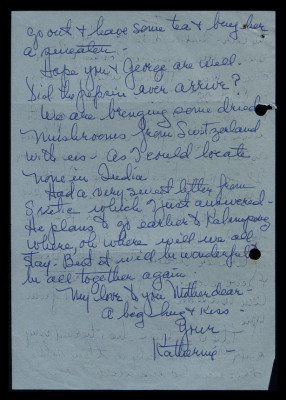 go out & have some tea & buy her
a sweater.
Hope you & George are well.
Did the ever arrive?
We are bringing some dried
mushrooms from Switzerland
with us - as I could locate
none in India
Had a very sweet letter from
which I just answered -
He plans to go earlier to Kalimpong
Where, oh where will we all
stay. But it will be wonderful to
be all together again.
My love to you Motherdear -
a big hug & kiss -
Your -
Katherine -